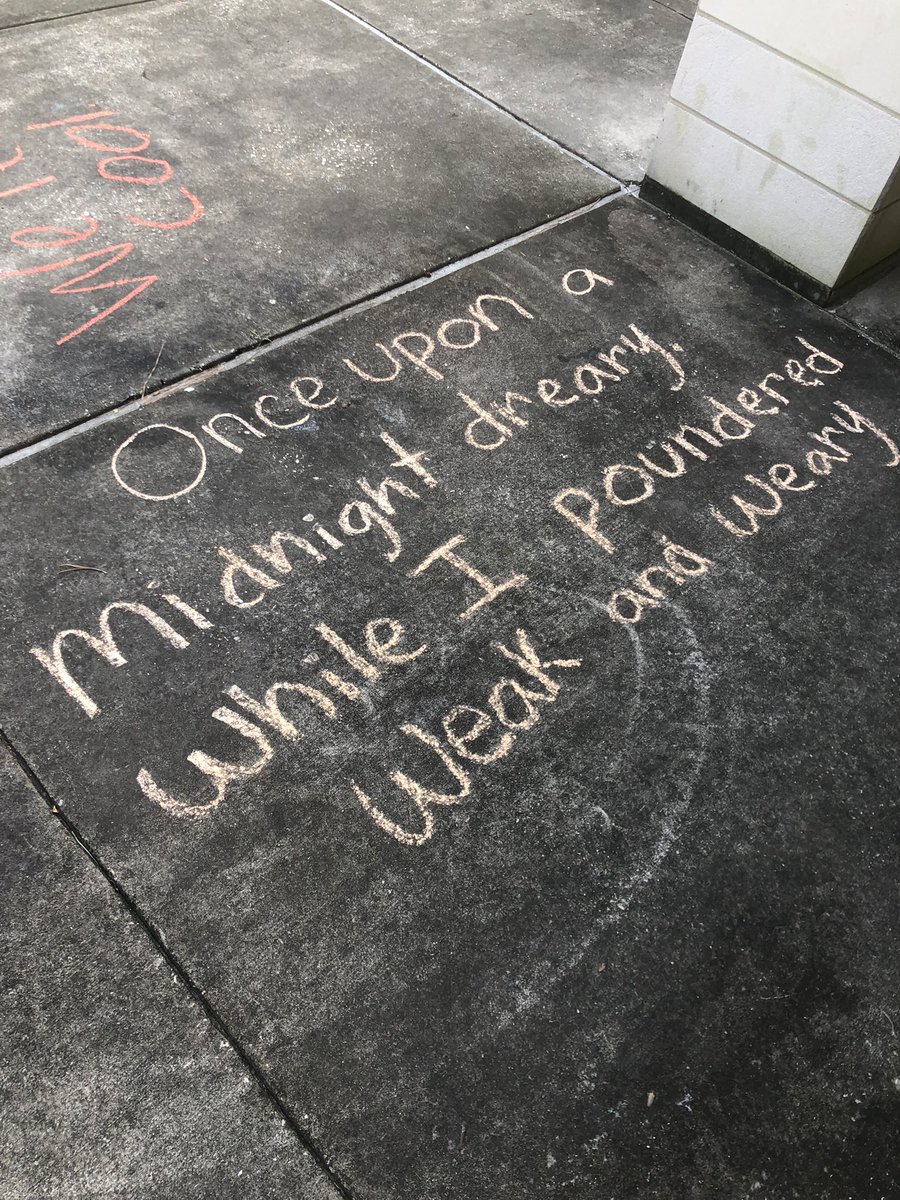 Once upon a
Midnight dreary.
while I poundered
weak and weary